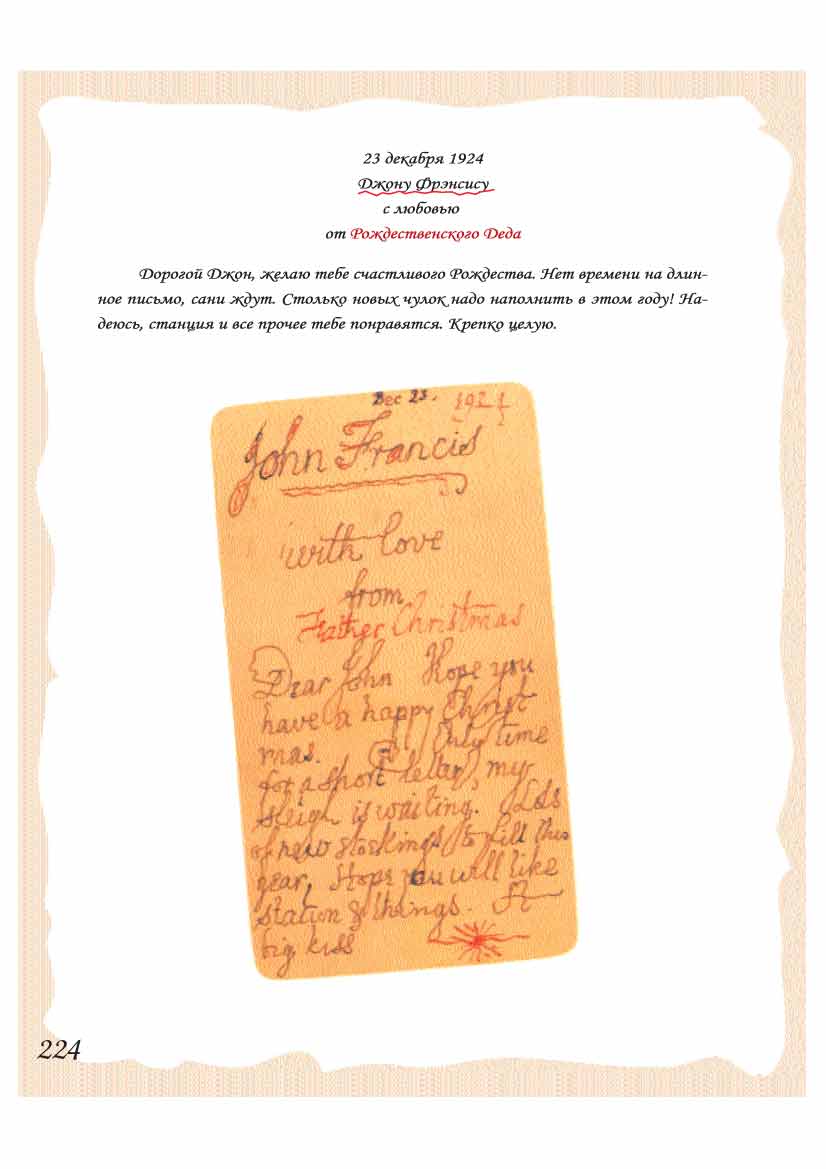 23 декабря 1924
Джону Фрэнсису
с любовью
от Рождественского Деда
Дорогой Джон, желаю тебе счастливого Рождества. Нет времени на длин-
ное письмо, сани ждут. Столько новых чулок надо наполнить в этом году! На-
деюсь, станция и все прочее тебе понравятся. Крепко целую.
Dec 23. 1924
John Francis
with love
from
Father Christmas
Dear John Hope you
have a happy Christ
mas. Only time
for a short letter, my
sleigh is waiting. Lots
of new stockings to fill this
year, Hope you will like
station & things. A
big kiss
224